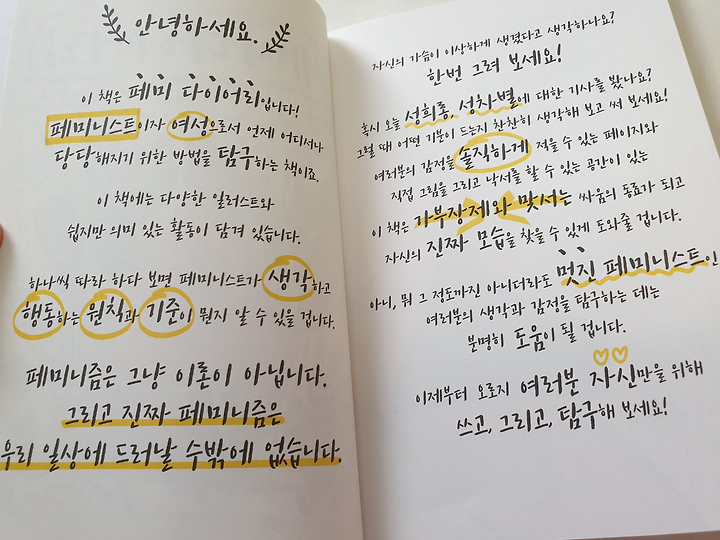 안녕하세요.
이 책은 페미 다이어리입니다!
페미니스트이자 여성으로서 언제 어디서나
당당해지기 위한 방법을 탐구하는 책이죠.
이 책에는 다양한 일러스트와
쉽지만 의미 있는 활동이 담겨 있습니다.
하나씩 따라 하다 보면 페미니스트가 생각하고
행동하는 원칙과 기준이 뭔지 알 수 있을 겁니다.
페미니즘은 그냥 이론이 아닙니다.
그리고 진짜 페미니즘은
우리 일상에 드러날 수밖에 없습니다.
자신의 가슴이 이상하게 생겼다고 생각하나요?
한번 그려 보세요!
혹시 오늘 성희롱, 성차별에 대한 기사를 봤나요?
그럴 때 어떤 기분이 드는지 찬찬히 생각해 보고 써 보세요!
여러분의 감정을 솔직하게 적을 수 있는 페이지와
직접 그림을 그리고 낙서를 할 수 있는 공간이 있는
이 책은 가부장제와 맞서는 싸움의 동료가 되고
자신의 진짜 모습을 찾을 수 있게 도와줄 겁니다.
아니, 뭐 그 정도까진 아니더라도 멋진 페미니스트인
여러분의 생각과 감정을 탐구하는 데는
분명히 도움이 될 겁니다.
이제부터 오로지 여러분 자신만을 위해
쓰고, 그리고, 탐구해 보세요!